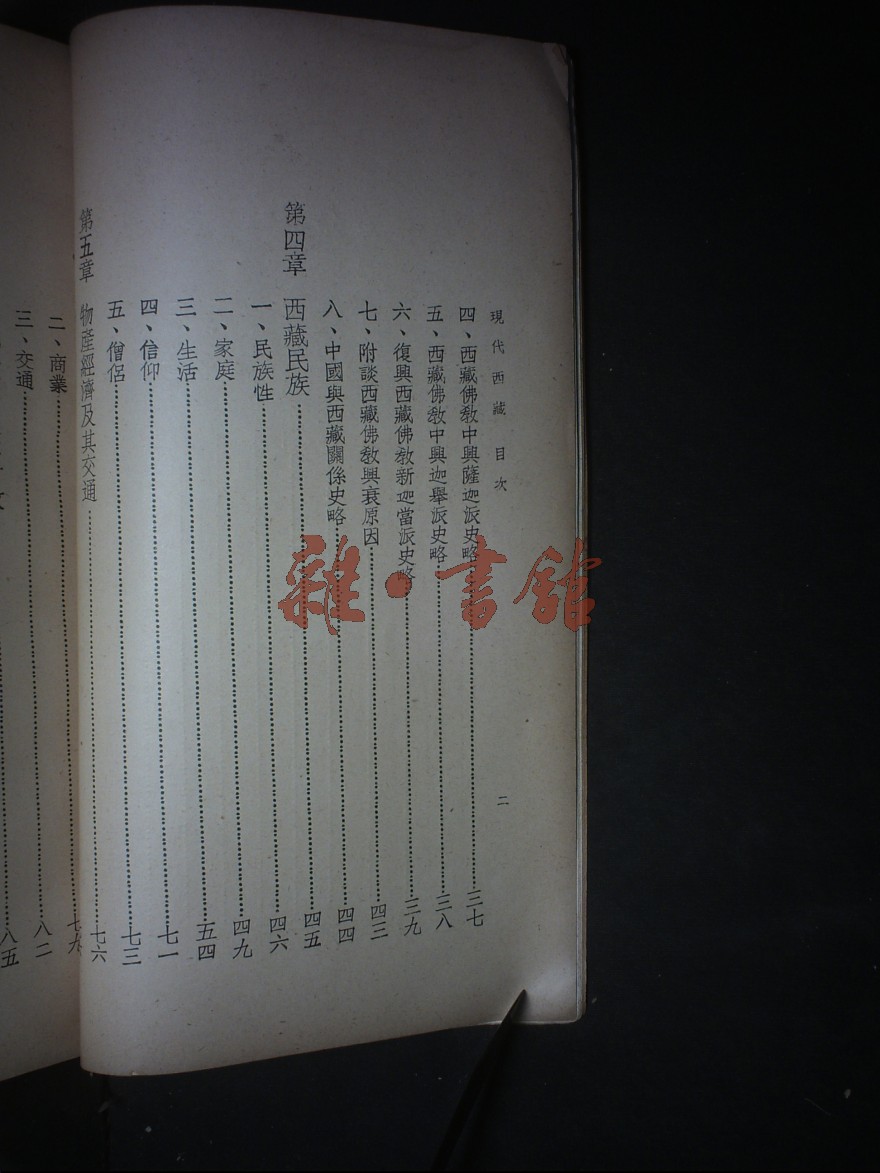 現代西藏 目次 二
四、西藏佛教中興薩迦派史略……三七
五、西藏佛教中興迦舉派史略……三八
六、復興西藏佛教新迦當派史略……三九
七、附談西藏佛教興衰原因……四三
八、中國與西藏關係史略……四四
第四章 西藏民族……四五
一、民族性……四六
二、家庭……四九
三、生活……五四
四、信仰……七一
五、僧侶……七三
第五章 物產經濟及其交通……七六
七九
二、商業……八二
三、交通……八五
雜·書館